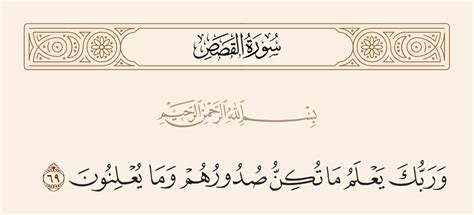 سُورَةُ القَصَصِ
بِسْمِ اللَّهِ الرَّحْمَٰنِ الرَّحِيمِ
وَرَبُّكَ يَعْلَمُ مَا تُكِنُّ صُدُورُهُمْ وَمَا يُعْلِنُونَ ٦٩